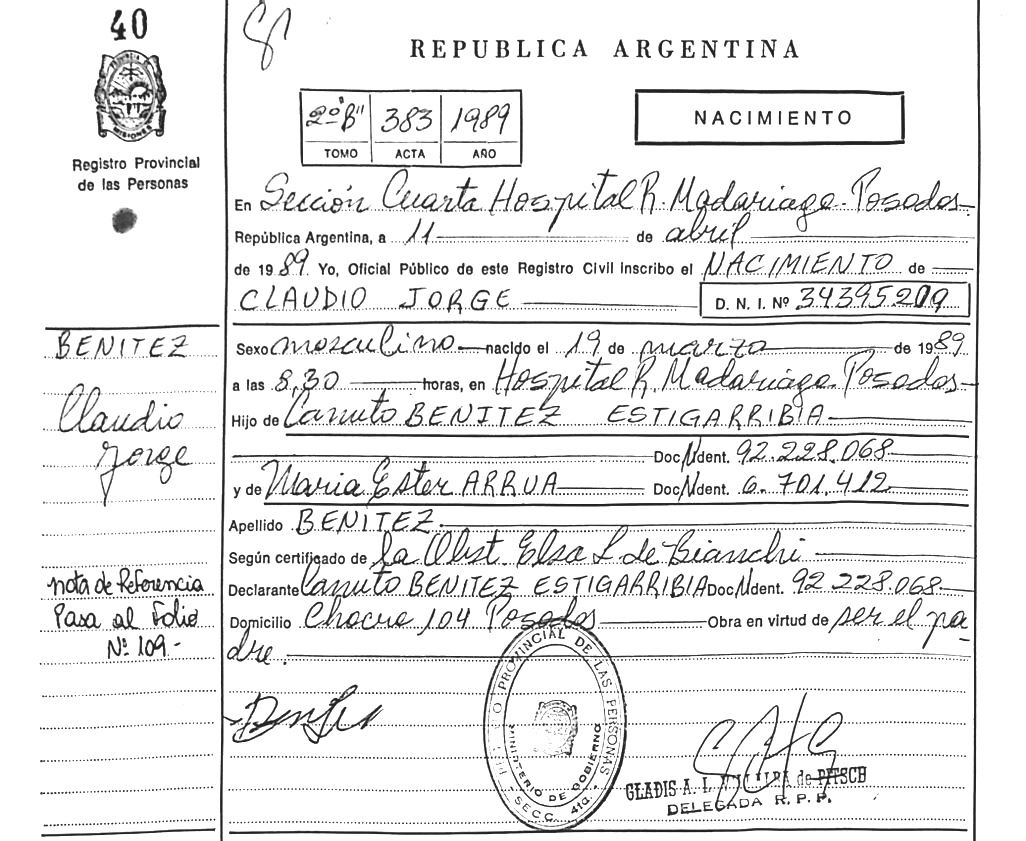 40
REPUBLICA ARGENTINA
PROVINCIA DE MISIONES
Registro Provincial
de las Personas
2º "B" 383 1989
TOMO ACTA AÑO
NACIMIENTO
En Sección Cuarta Hospital R. Madariaga - Posadas
República Argentina, a 11 de abril
de 1989 Yo, Oficial Público de este Registro Civil Inscribo el NACIMIENTO de
CLAUDIO JORGE D. N. I. Nº 34395209
BENITEZ
Claudio
Jorge
Sexo masculino nacido el 19 de marzo de 1989
a las 8,30 horas, en Hospital R. Madariaga - Posadas
Hijo de Canuto BENITEZ ESTIGARRIBIA
Doc/Ident. 92.228.068
y de Maria Ester ARRUA Doc/Ident. 6.701.412
Apellido BENITEZ
Según certificado de la Obst. Elsa L de Bianchi
Declarante Canuto BENITEZ ESTIGARRIBIA Doc/Ident. 92.228.068
Domicilio Chacra 104 Posadas Obra en virtud de ser el pa-
dre.
nota de Referencia
Pasa al Folio
Nº 109.-
REGISTRO PROVINCIAL DE LAS PERSONAS
MINISTERIO DE GOBIERNO
SECC. 4ta.
GLADIS A. I. de PITSCH
DELEGADA R. P. P.